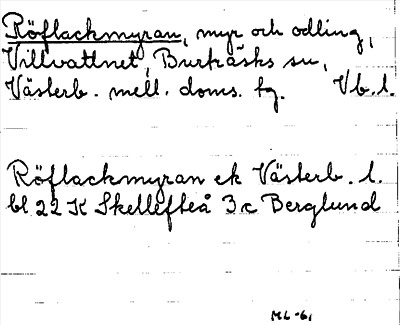 Röflackmyran, myr och odling,
Villvattnet, Burträsks sn,
Västerb. mell. doms. tg. Vb. l.
Röflackmyran ek Västerb. l.
bl 22 K Skellefteå 3c Berglund
ML-61